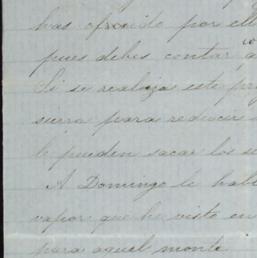 has ofrecido por ell
pues debes contar
Si se realiza este
sierra para reducir
le pueden sacar los se
A Domingo le habl
vapor que he visto en
para aquel monte